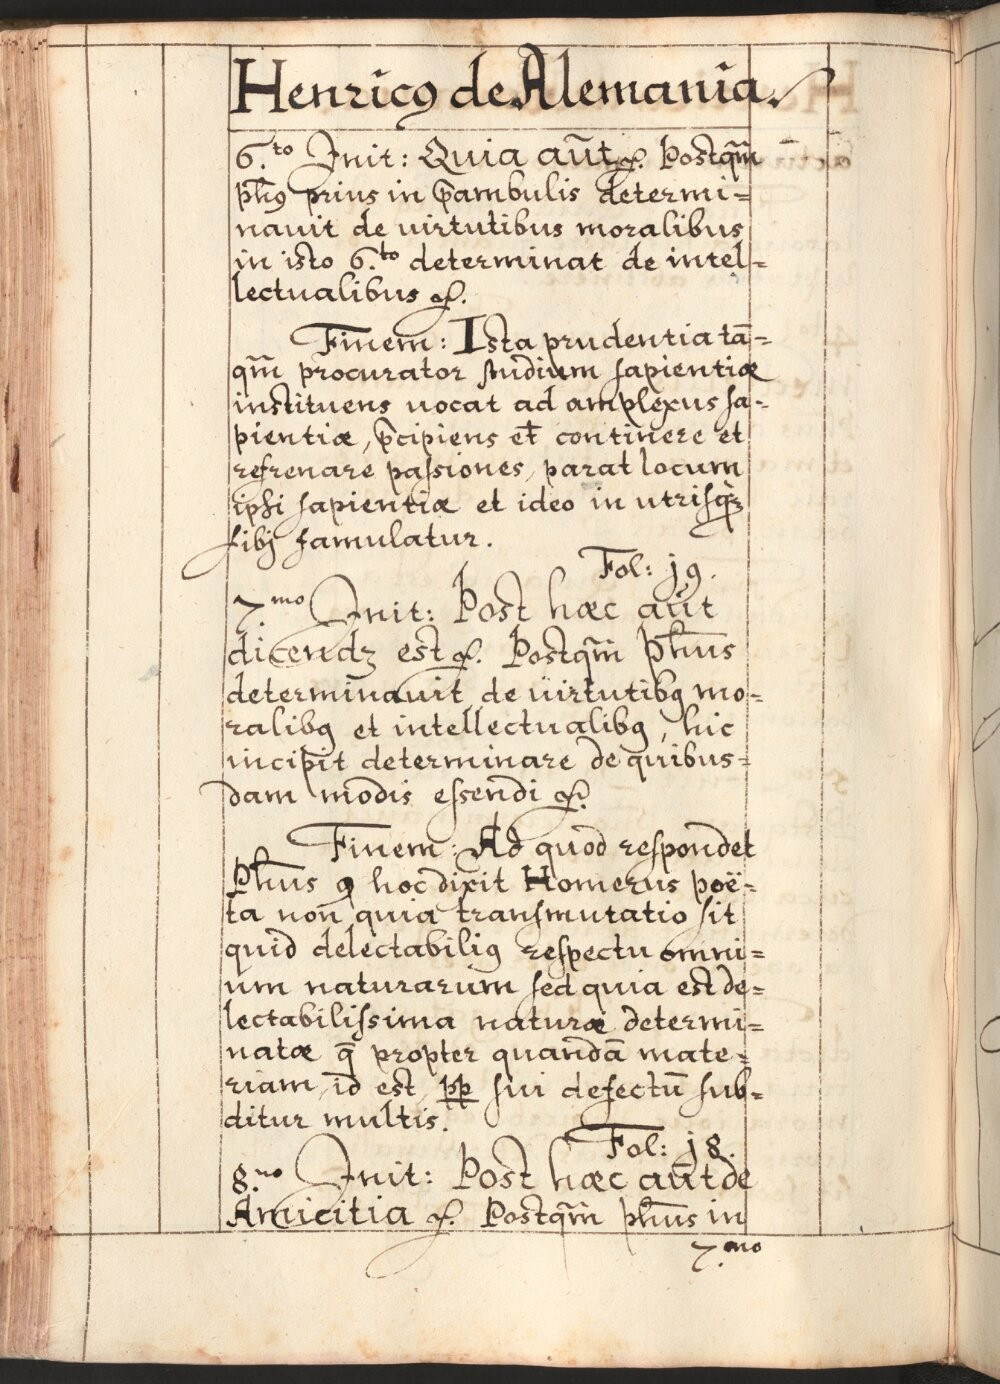 Henricꝯ de Alemania.
6.to Init: Quia aūt ⁊c. Postqm̄
ph̄ꝯ prius in p̄ambulis determi=
nauit de virtutibus moralibus
in isto 6.to determinat de intel=
lectualibus ⁊c.
Finem: Ista prudentia tā=
qm̄ procurator studium sapientiæ
instituens uocat ad amplexus sa=
pientiæ, p̄cipiens et̄ continere et
refrenare passiones, parat locum
ipsi sapientiæ et ideo in utrisqꝫ
sibj famulatur.
Fol: j9.
7.mo Init: Post hæc aūt
dicendꝫ est ⁊c. Postqm̄ Ph̄us
determinauit de uirtutibꝯ mo=
ralibꝯ et intellectualibꝯ, hic
incipit determinare de quibus=
dam modis essendi ⁊c.
Finem: Ad quod respondet
Ph̄us ꝙ hoc dixit Homerus poë=
ta non quia transmutatio sit
quid delectabiliꝯ respectu omni=
um naturarum sed quia est de=
lectabilissima naturæ determi=
natæ q̄ propter quandā mate=
riam, id est, ꝓp̱ sui defectū sub=
ditur multis.
Fol: j8.
8.uo Init: Post hæc aūt de
Amicitia ⁊c. Postqm̄ ph̄us in
7.mo